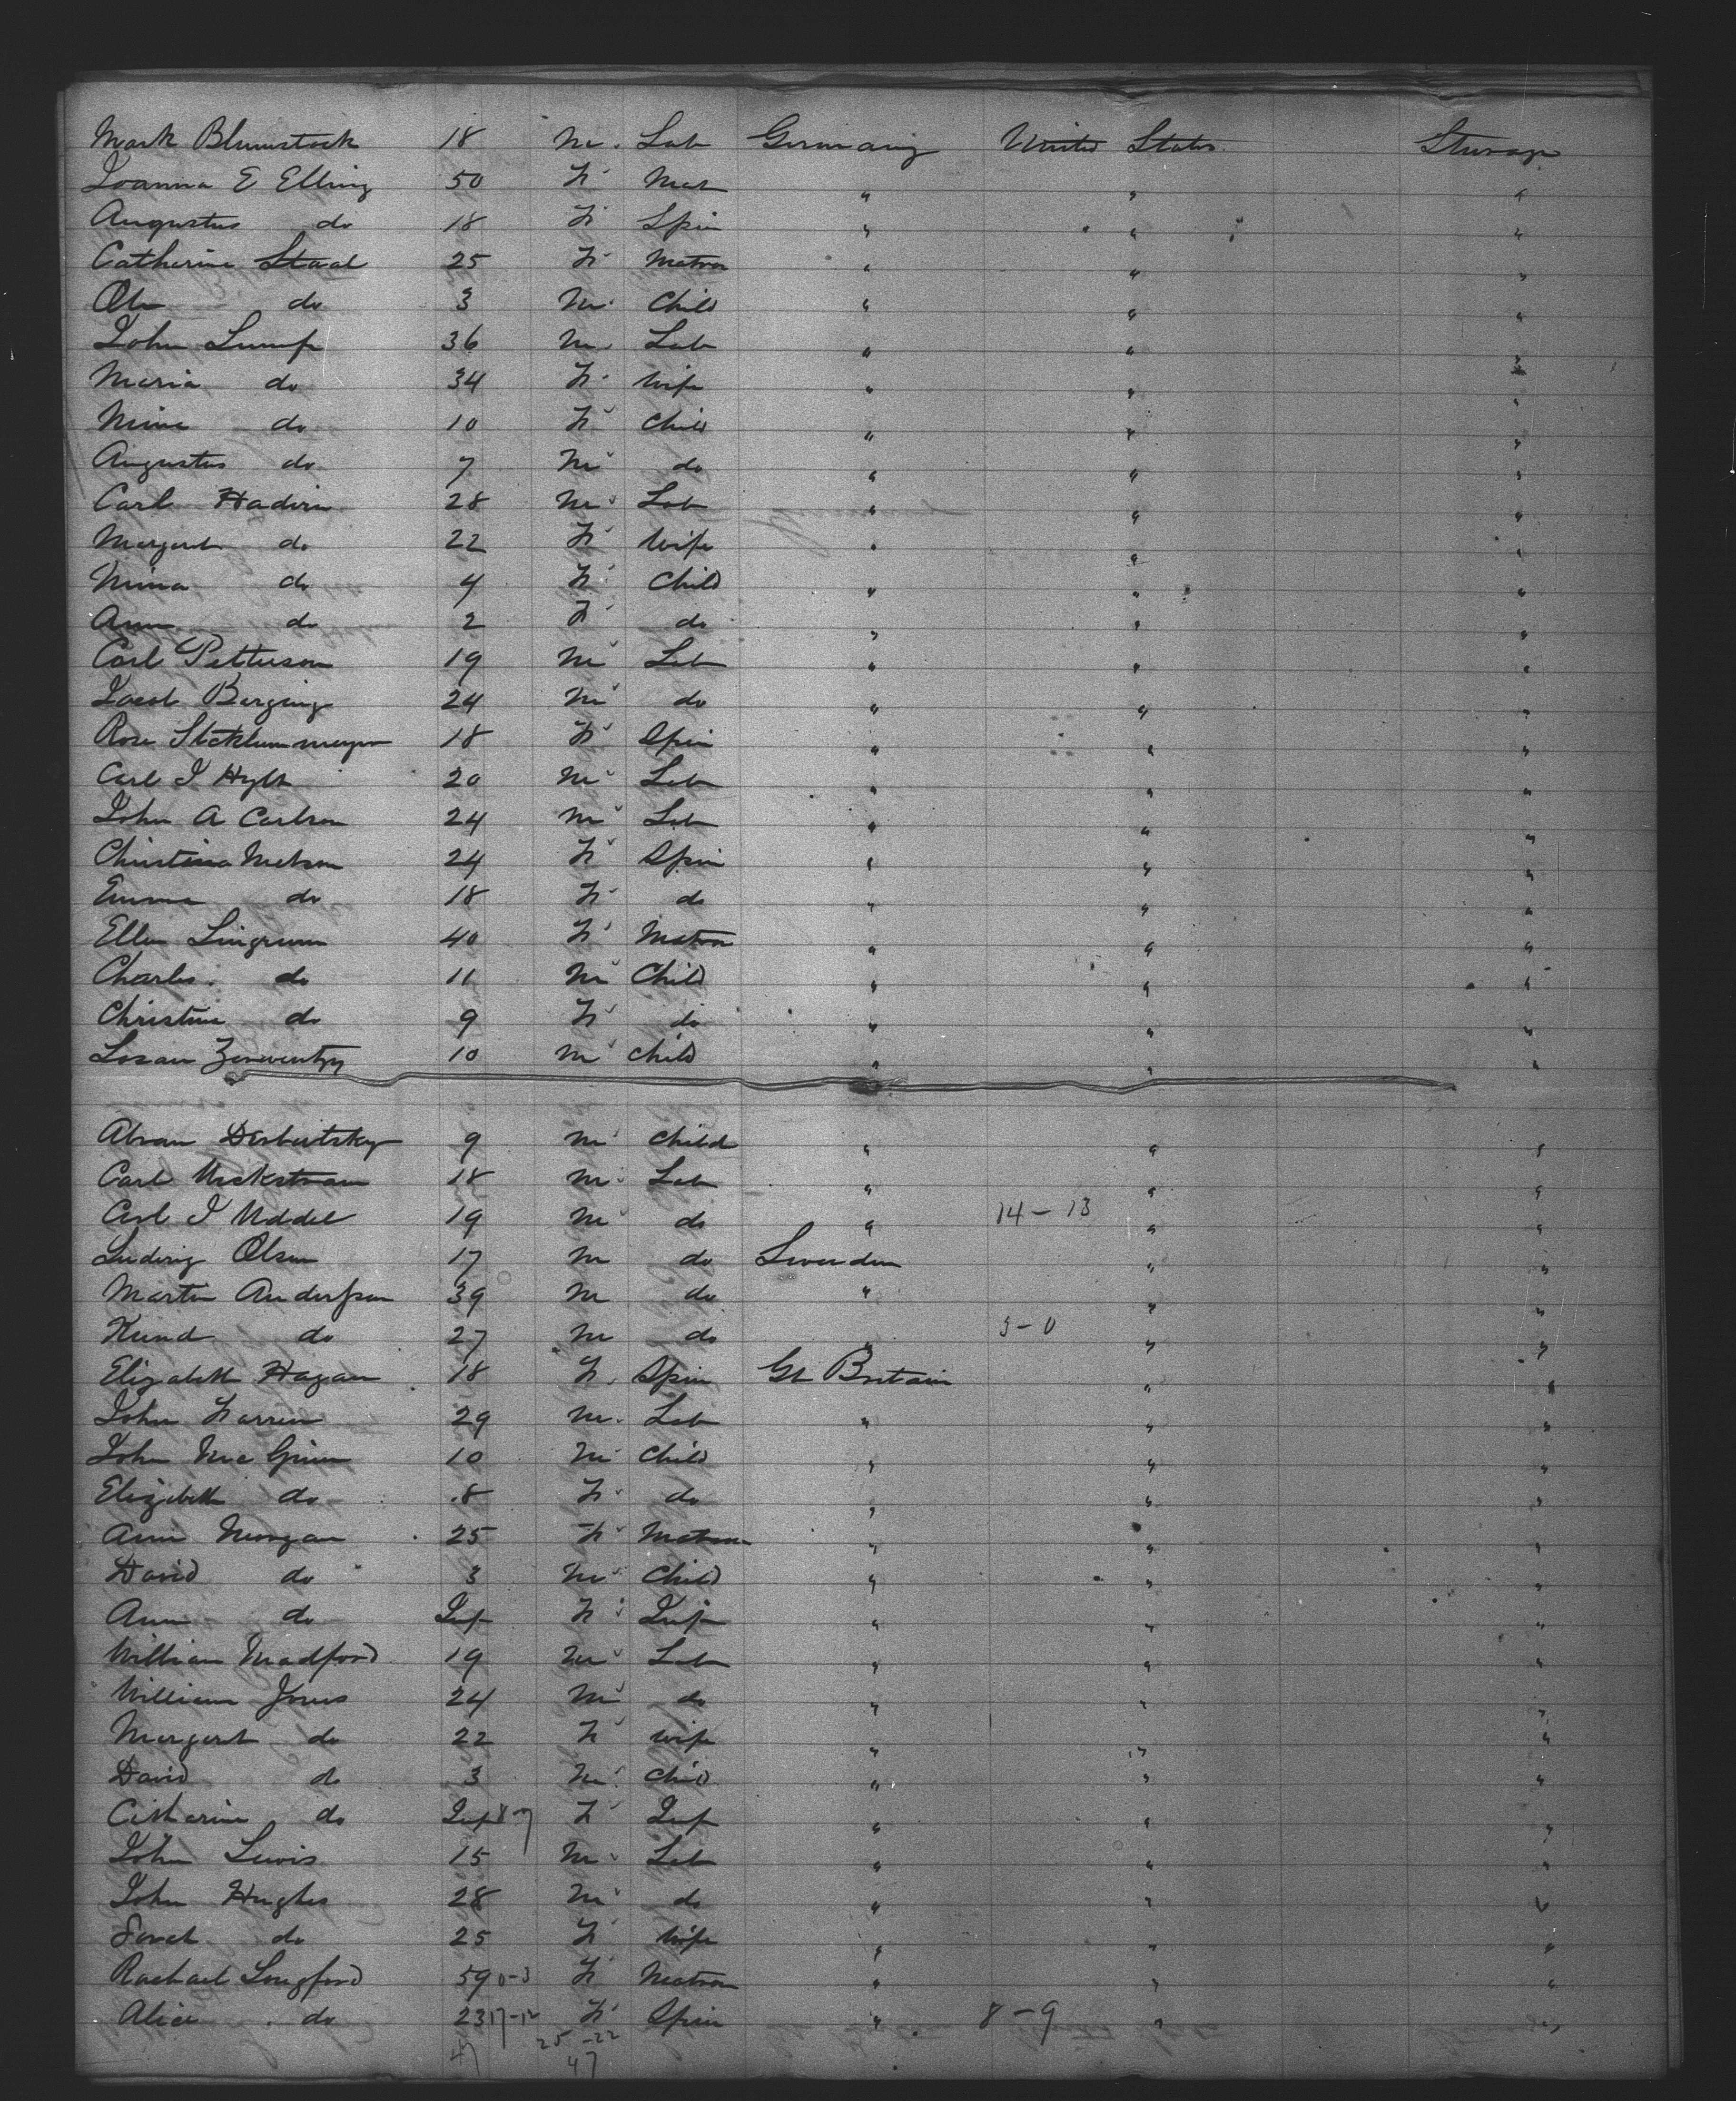 Mark Blumstock 18 M. Lab Germany United States Steerage
Joanna E Elling 50 F. Mat " " "
Augustus do 18 F Spin " " "
Catherine Staal 25 F. Matron " " "
Ole do 3 M. Child " " "
John Lump 36 M. Lab " " "
Maria do 34 F. Wife " " "
Mine do 10 F Child " " "
Augustus do 7 M do " " "
Carl Hadin 28 M. Lab " " "
Margaret do 22 F Wife " " "
Mina do 4 F. Child " " "
Ann do 2 F do " " "
Carl Petterson 19 M Lab " " "
Jacob Berging 24 M do " " "
Rose 18 F Spin " " "
Carl J Hylt 20 M Lab " " "
John A Carlson 24 M Lab " " "
Christina Nelson 24 F Spin " " "
Emma do 18 F do " " "
Ellen Lingrum 40 F Matron " " "
Charles do 11 M Child " " "
Christine do 9 F do " " "
10 M Child " " "
Abram 9 M Child " " "
Carl 18 M. Lab " " "
Carl J Uddel 19 M do " 14-13 " "
Ludwig Olsen 17 M do Sweeden " "
Martin Anderson 39 M do " " "
Knud do 27 M do " 3-0 " "
Elizabeth Hagan 18 F. Spin Gt Britain " "
John Farren 29 M. Lab " " "
John McGinn 10 M Child " " "
Elizabeth do 8 F. do " " "
Ann Morgan 25 F Matron " " "
David do 3 M Child " " "
Ann do Inf F Inf " " "
William Madford 19 M Lab " " "
William Jones 24 M do " " "
Margaret do 22 F wife " " "
David do 3 M. Child " " "
Catharine do Inf 8-7 F Inf " " "
John Lewis 15 M. Lab " " "
John Hughes 28 M do " " "
Sarah do 25 F Wife " " "
Rachael Longford 59 0-3 F Matron " " "
Alice do 23 17-12 F Spin " 8-9 " "
25-22
47 47